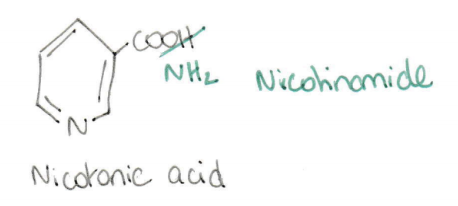 COOH
NH2 Nicotinamide
N
Nicotonic acid